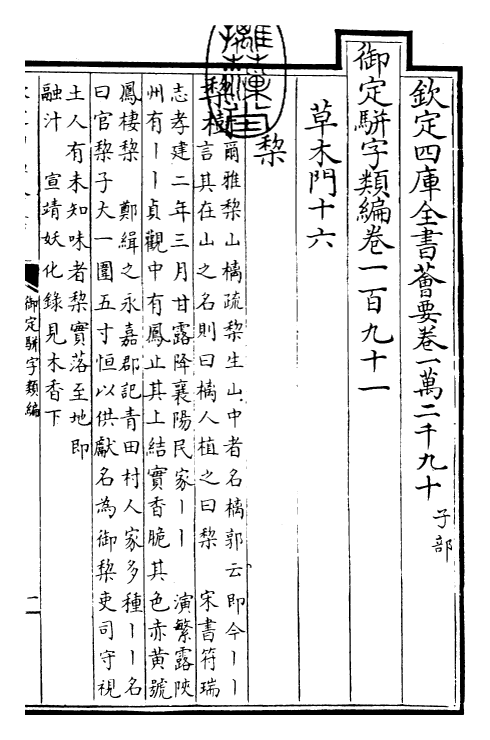 欽定四庫全書薈要卷一萬二千九十 子部
御定駢字類編卷一百九十一
草木門十六
棃
棃樹 爾雅棃山樆疏棃生山中者名樆郭云即今丨丨
言其在山之名則曰樆人植之曰棃 宋書符瑞
志孝建二年三月甘露降襄陽民家丨丨 演繁露陜
州有丨丨貞觀中有鳳止其上結實香脆其色赤黃號
鳳棲棃 鄭緝之永嘉郡記青田村人家多種丨丨名
曰官棃子大一圍五寸恒以供獻名為御棃吏司守視
土人有未知味者棃實落至地即
融汁 宣靖妖化錄見木香下
御定駢字類編
一